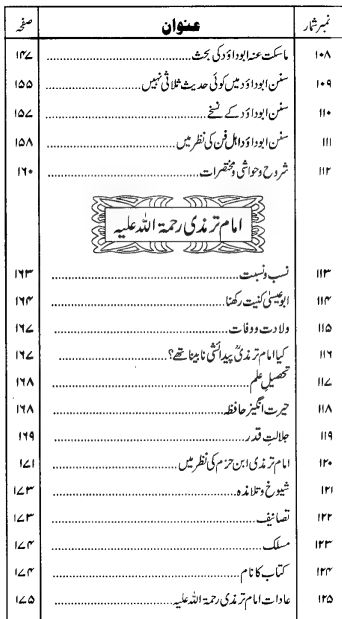 نمبر شمار عنوان صفحہ
۱۰۸ ماسکت عنہ ابوداؤد کی بحث ۱۴۷
۱۰۹ سنن ابوداؤد میں کوئی حدیث ثلاثی نہیں ۱۵۵
۱۱۰ سنن ابوداؤد کے نسخے ۱۵۷
۱۱۱ سنن ابوداؤد اہل فن کی نظر میں ۱۵۸
۱۱۲ شروح وحواشی ومختصرات ۱۶۰
امام ترمذی رحمۃ اللہ علیہ
۱۱۳ نسب ونسبت ۱۶۳
۱۱۴ ابوعیسیٰ کنیت رکھنا ۱۶۴
۱۱۵ ولادت ووفات ۱۶۷
۱۱۶ کیا امام ترمذیؒ پیدائشی نابینا تھے؟ ۱۶۷
۱۱۷ تحصیل علم ۱۶۸
۱۱۸ حیرت انگیز حافظہ ۱۶۸
۱۱۹ جلالتِ قدر ۱۶۹
۱۲۰ امام ترمذی ابن حزم کی نظر میں ۱۷۱
۱۲۱ شیوخ وتلامذہ ۱۷۳
۱۲۲ تصانیف ۱۷۳
۱۲۳ مسلک ۱۷۴
۱۲۴ کتاب کا نام ۱۷۴
۱۲۵ عادات امام ترمذی رحمۃ اللہ علیہ ۱۷۵